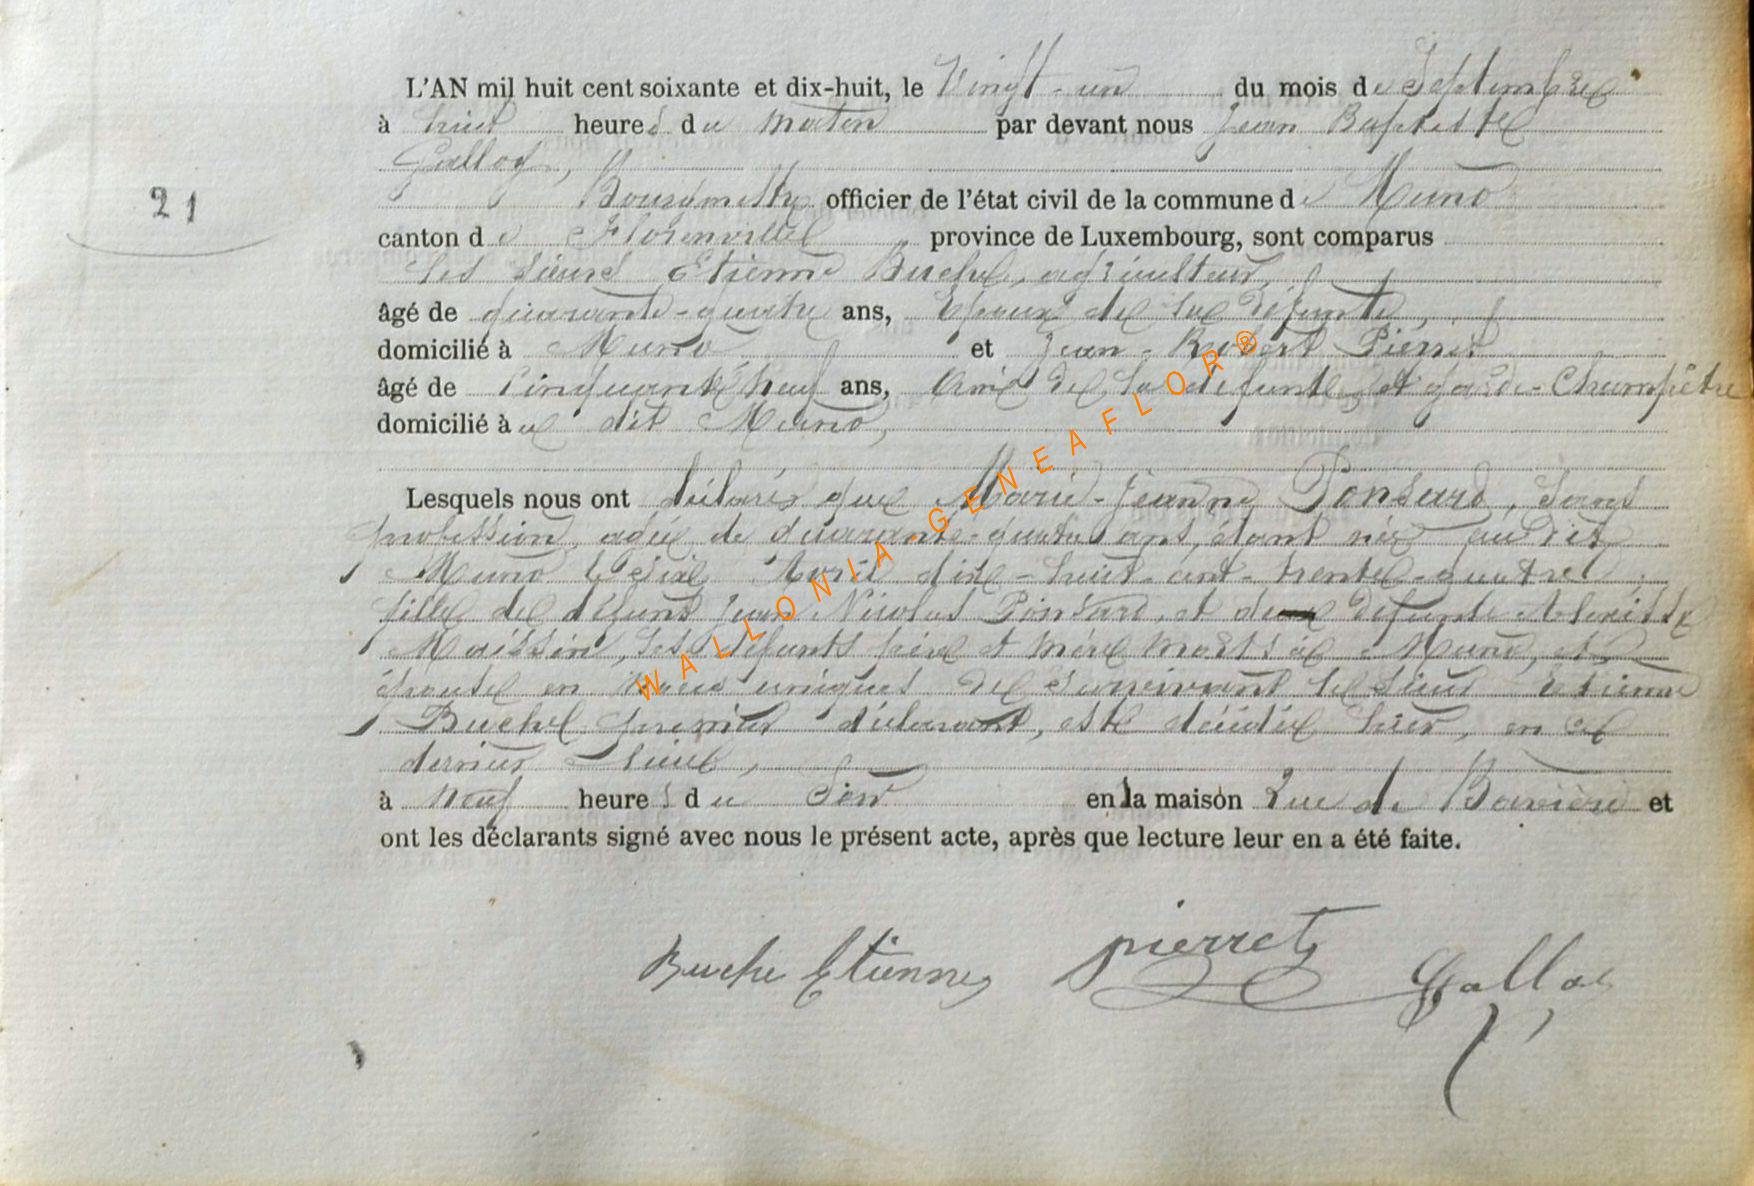 L'AN mil huit cent soixante et dix-huit, le Vingt-un du mois de Septembre
à huit heures du matin par devant nous Jean Baptiste
Bourgmestre officier de l'état civil de la commune de Muno
21
canton de Florenville province de Luxembourg, sont comparus
les sieurs Etienne Buché, agriculteur,
âgé de quarante-quatre ans, Epoux de la défunte,
domicilié à Muno et Jean-Robert Pierret
âgé de cinquante neuf ans, Ami de la défunte et garde-Champêtre
domicilié au dit Muno,
Lesquels nous ont déclaré que Marie-Jeanne Ponsard, sans
profession, agée de quarante-quatre ans, étant née au dit
Muno le six Avril dix-huit-cent-trente-quatre,
fille de défunt Jean Nicolas Ponsard, et de défunte
Maissin, ses défunts père et mère morts à Muno, et
épouse en uniques de survivant le sieur Etienne
Buché premier déclarant, est décédée hier, en ce
dernier lieu,
à neuf heures du Soir en la maison Rue de Bavière et
ont les déclarants signé avec nous le présent acte, après que lecture leur en a été faite.
Buche Etienne pierret
WALLONIA-GENEAFLOR®